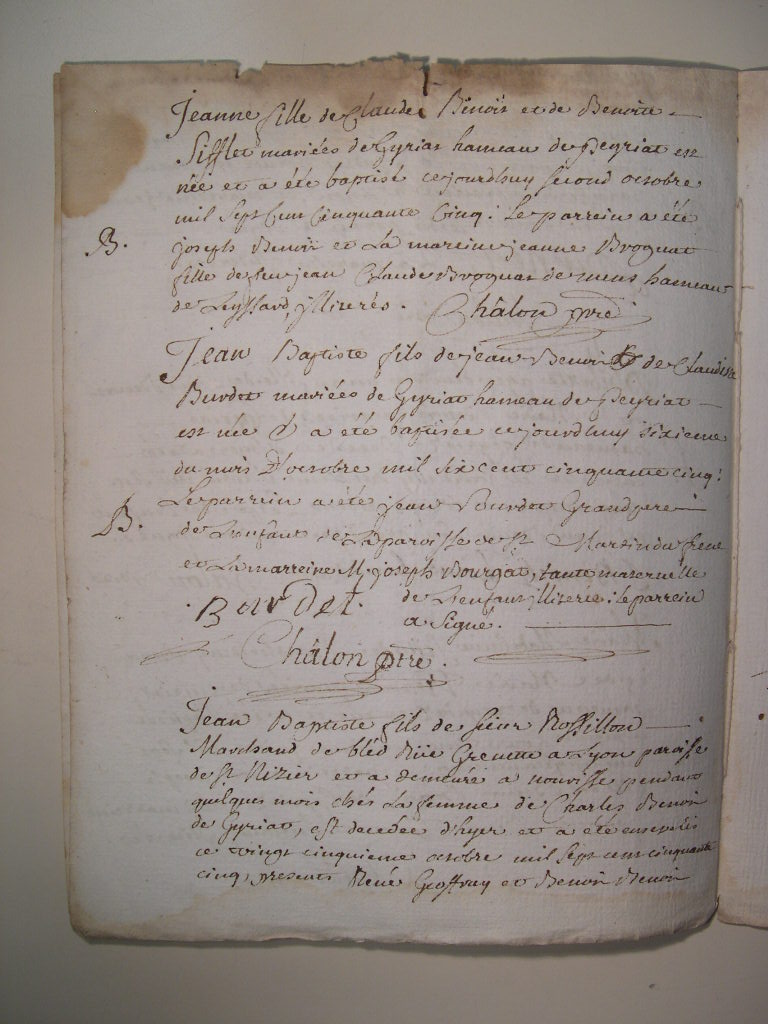 Jeanne fille de Claude Benoit et de Benoite
Sifflet mariées de Gyriat hameau de Peyriat est
née et a été baptisé cejourdhuy second octobre
mil Sept Cent Cinquante Cinq: Le parrein a été
B. joseph Benoit et La mareine jeanne Broquat
fille de feu jean Claude Broquat de mens hameau
de Leyssard, jlliterés. Châlon ptre
Jean Baptiste fils de jean Benoit & de Claudine
Burdet mariées de Gyriat hameau de Peyriat
est née & a été baptisée cejourdhuy sixieme
du mois D'octobre mil six cent cinquante cinq:
Le parrein a été jean Bourdet Grandpere
B. de L'enfant de La paroisse de St. Martin du frene
et La marreine M. joseph Bourgat, tante maternelle
de L'enfant jlliterée: le parrein
Bourdet. a Signé.
Châlon ptre.
Jean Baptiste fils de sieur Rossillon
Marchand de bléd Rüe Grenette a Lyon paroisse
de St. Nizier et a demeuré a nourisse pendant
quelques mois chés La femme de Charles Benoit
de Gyriat, est decedée d'hyer et a été enseveli
ce vingt cinquieme octobre mil Sept cent cinquante
cinq, presents René Geoffray et Benoit Benoit